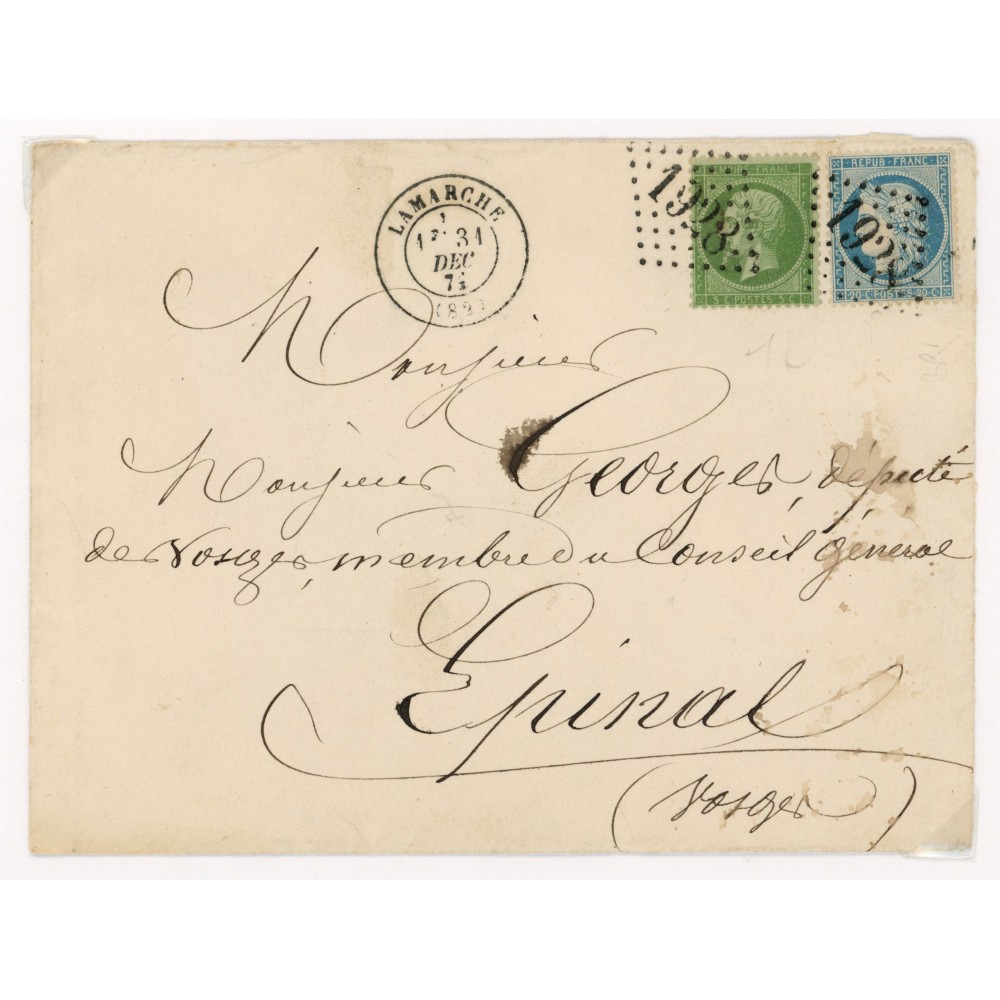 LAMARCHE
31
DEC
(82)
1928
REPUB·FRANC
5 C·POSTES 5 C·
20·C·POSTES·20·C·
Monsieur
Monsieur Georges, député
des Vosges, membre du Conseil général
Epinal
(Vosges)